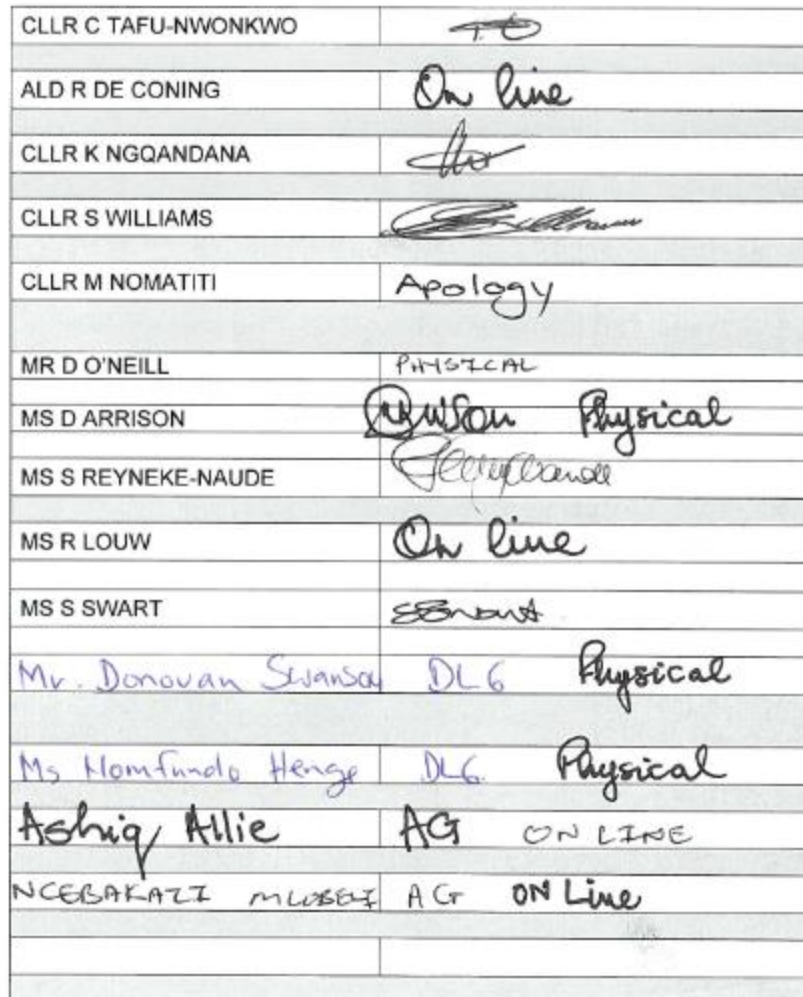 CLLR C TAFU-NWONKWO
ALD R DE CONING On line
CLLR K NGQANDANA
CLLR S WILLIAMS
CLLR M NOMATITI Apology
MR D O'NEILL PHYSICAL
MS D ARRISON Physical
MS S REYNEKE-NAUDE
MS R LOUW On line
MS S SWART
Mr. Donovan Swanson DLG Physical
Ms Nomfundo Henge DLG Physical
Ashiq Allie AG ON LINE
NCEBAKAZI AG ON Line